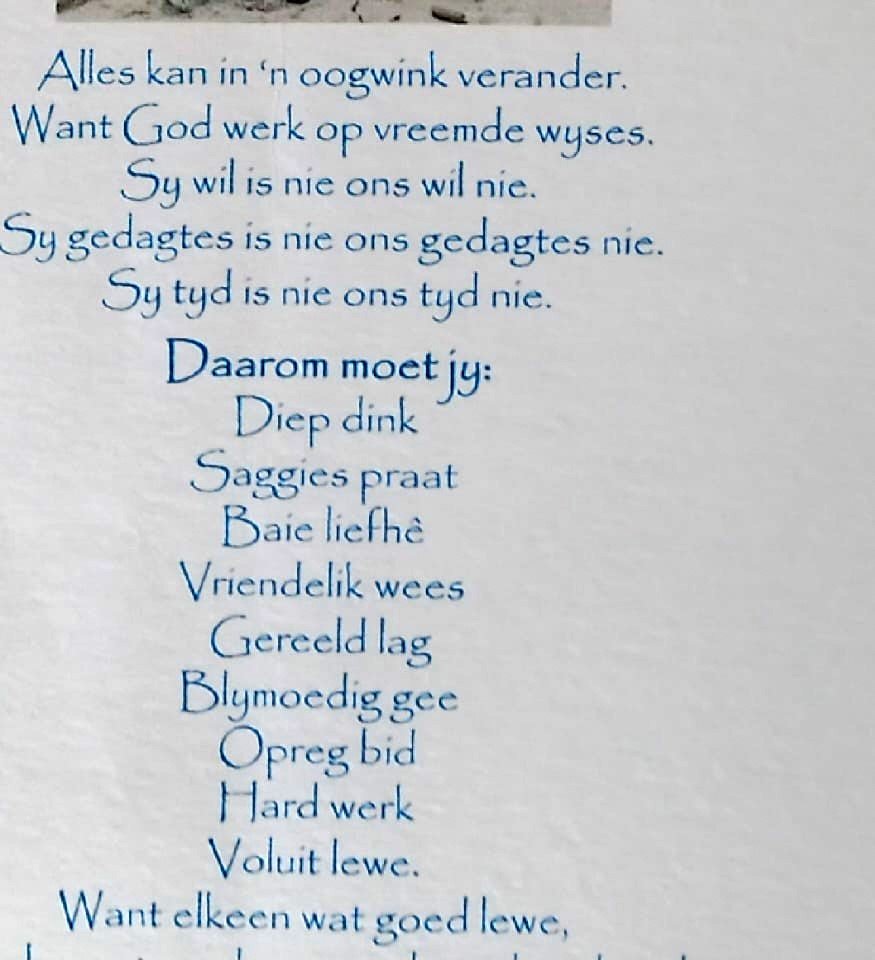 Alles kan in ‘n oogwink verander.
Want God werk op vreemde wyses.
Sy wil is nie ons wil nie.
Sy gedagtes is nie ons gedagtes nie.
Sy tyd is nie ons tyd nie.
Daarom moet jy:
Diep dink
Saggies praat
Baie liefhê
Vriendelik wees
Gereeld lag
Blymoedig gee
Opreg bid
Hard werk
Voluit lewe.
Want elkeen wat goed lewe,